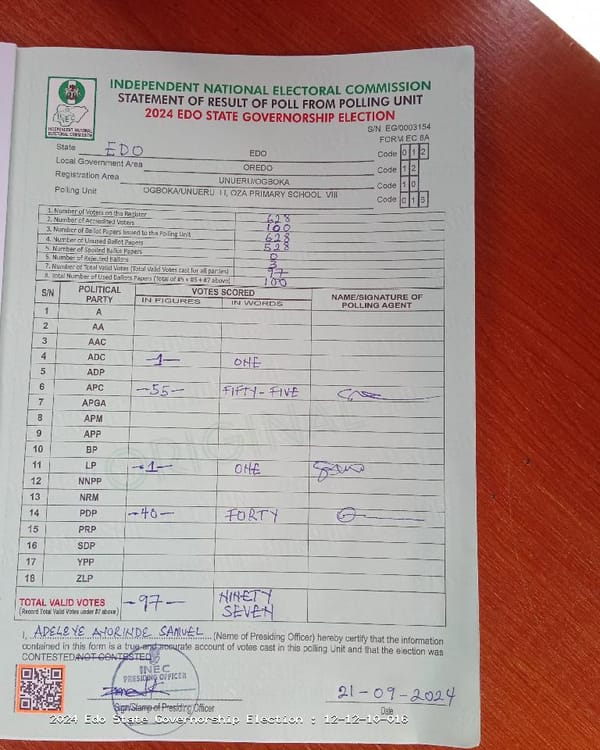 INDEPENDENT NATIONAL ELECTORAL COMMISSION
STATEMENT OF RESULT OF POLL FROM POLLING UNIT
2024 EDO STATE GOVERNORSHIP ELECTION
INEC
INDEPENDENT NATIONAL
ELECTORAL COMMISSION
S/N EG/0003154
FORM EC 8A
State EDO EDO Code 0 1 2
Local Government Area OREDO Code 1 2
Registration Area UNUERU/OGBOKA Code 1 0
Polling Unit OGBOKA/UNUERU I I, OZA PRIMARY SCHOOL VIII Code 0 1 6
1. Number of Voters on the Register 628
2. Number of Accredited Voters 100
3. Number of Ballot Papers Issued to the Polling Unit 628
4. Number of Unused Ballot Papers 528
5. Number of Spoiled Ballot Papers 0
6. Number of Rejected Ballots 3
7. Number of Total Valid Votes (Total Valid Votes cast for all parties) 97
8. Total Number of Used Ballots Papers (Total of #5 + #6 + #7 above) 100
S/N POLITICAL PARTY VOTES SCORED NAME/SIGNATURE OF POLLING AGENT
IN FIGURES IN WORDS
1 A
2 AA
3 AAC
4 ADC -1- ONE
5 ADP
6 APC -55- FIFTY-FIVE
7 APGA
8 APM
9 APP
10 BP
11 LP -1- ONE
12 NNPP
13 NRM
14 PDP -40- FORTY
15 PRP
16 SDP
17 YPP
18 ZLP
ORIGINAL
TOTAL VALID VOTES -97- NINETY SEVEN
(Record Total Valid Votes under #7 above)
I, ADELEYE AYORINDE SAMUEL (Name of Presiding Officer) hereby certify that the information
contained in this form is a true and accurate account of votes cast in this polling Unit and that the election was
CONTESTED/NOT CONTESTED
INEC
PRESIDING OFFICER
21-09-2024
Sign/Stamp of Presiding Officer Date
2024 Edo State Governorship Election : 12-12-10-016